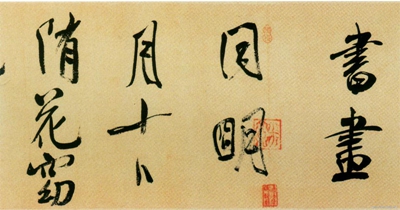 書畫
同明
月十日
隋花窈